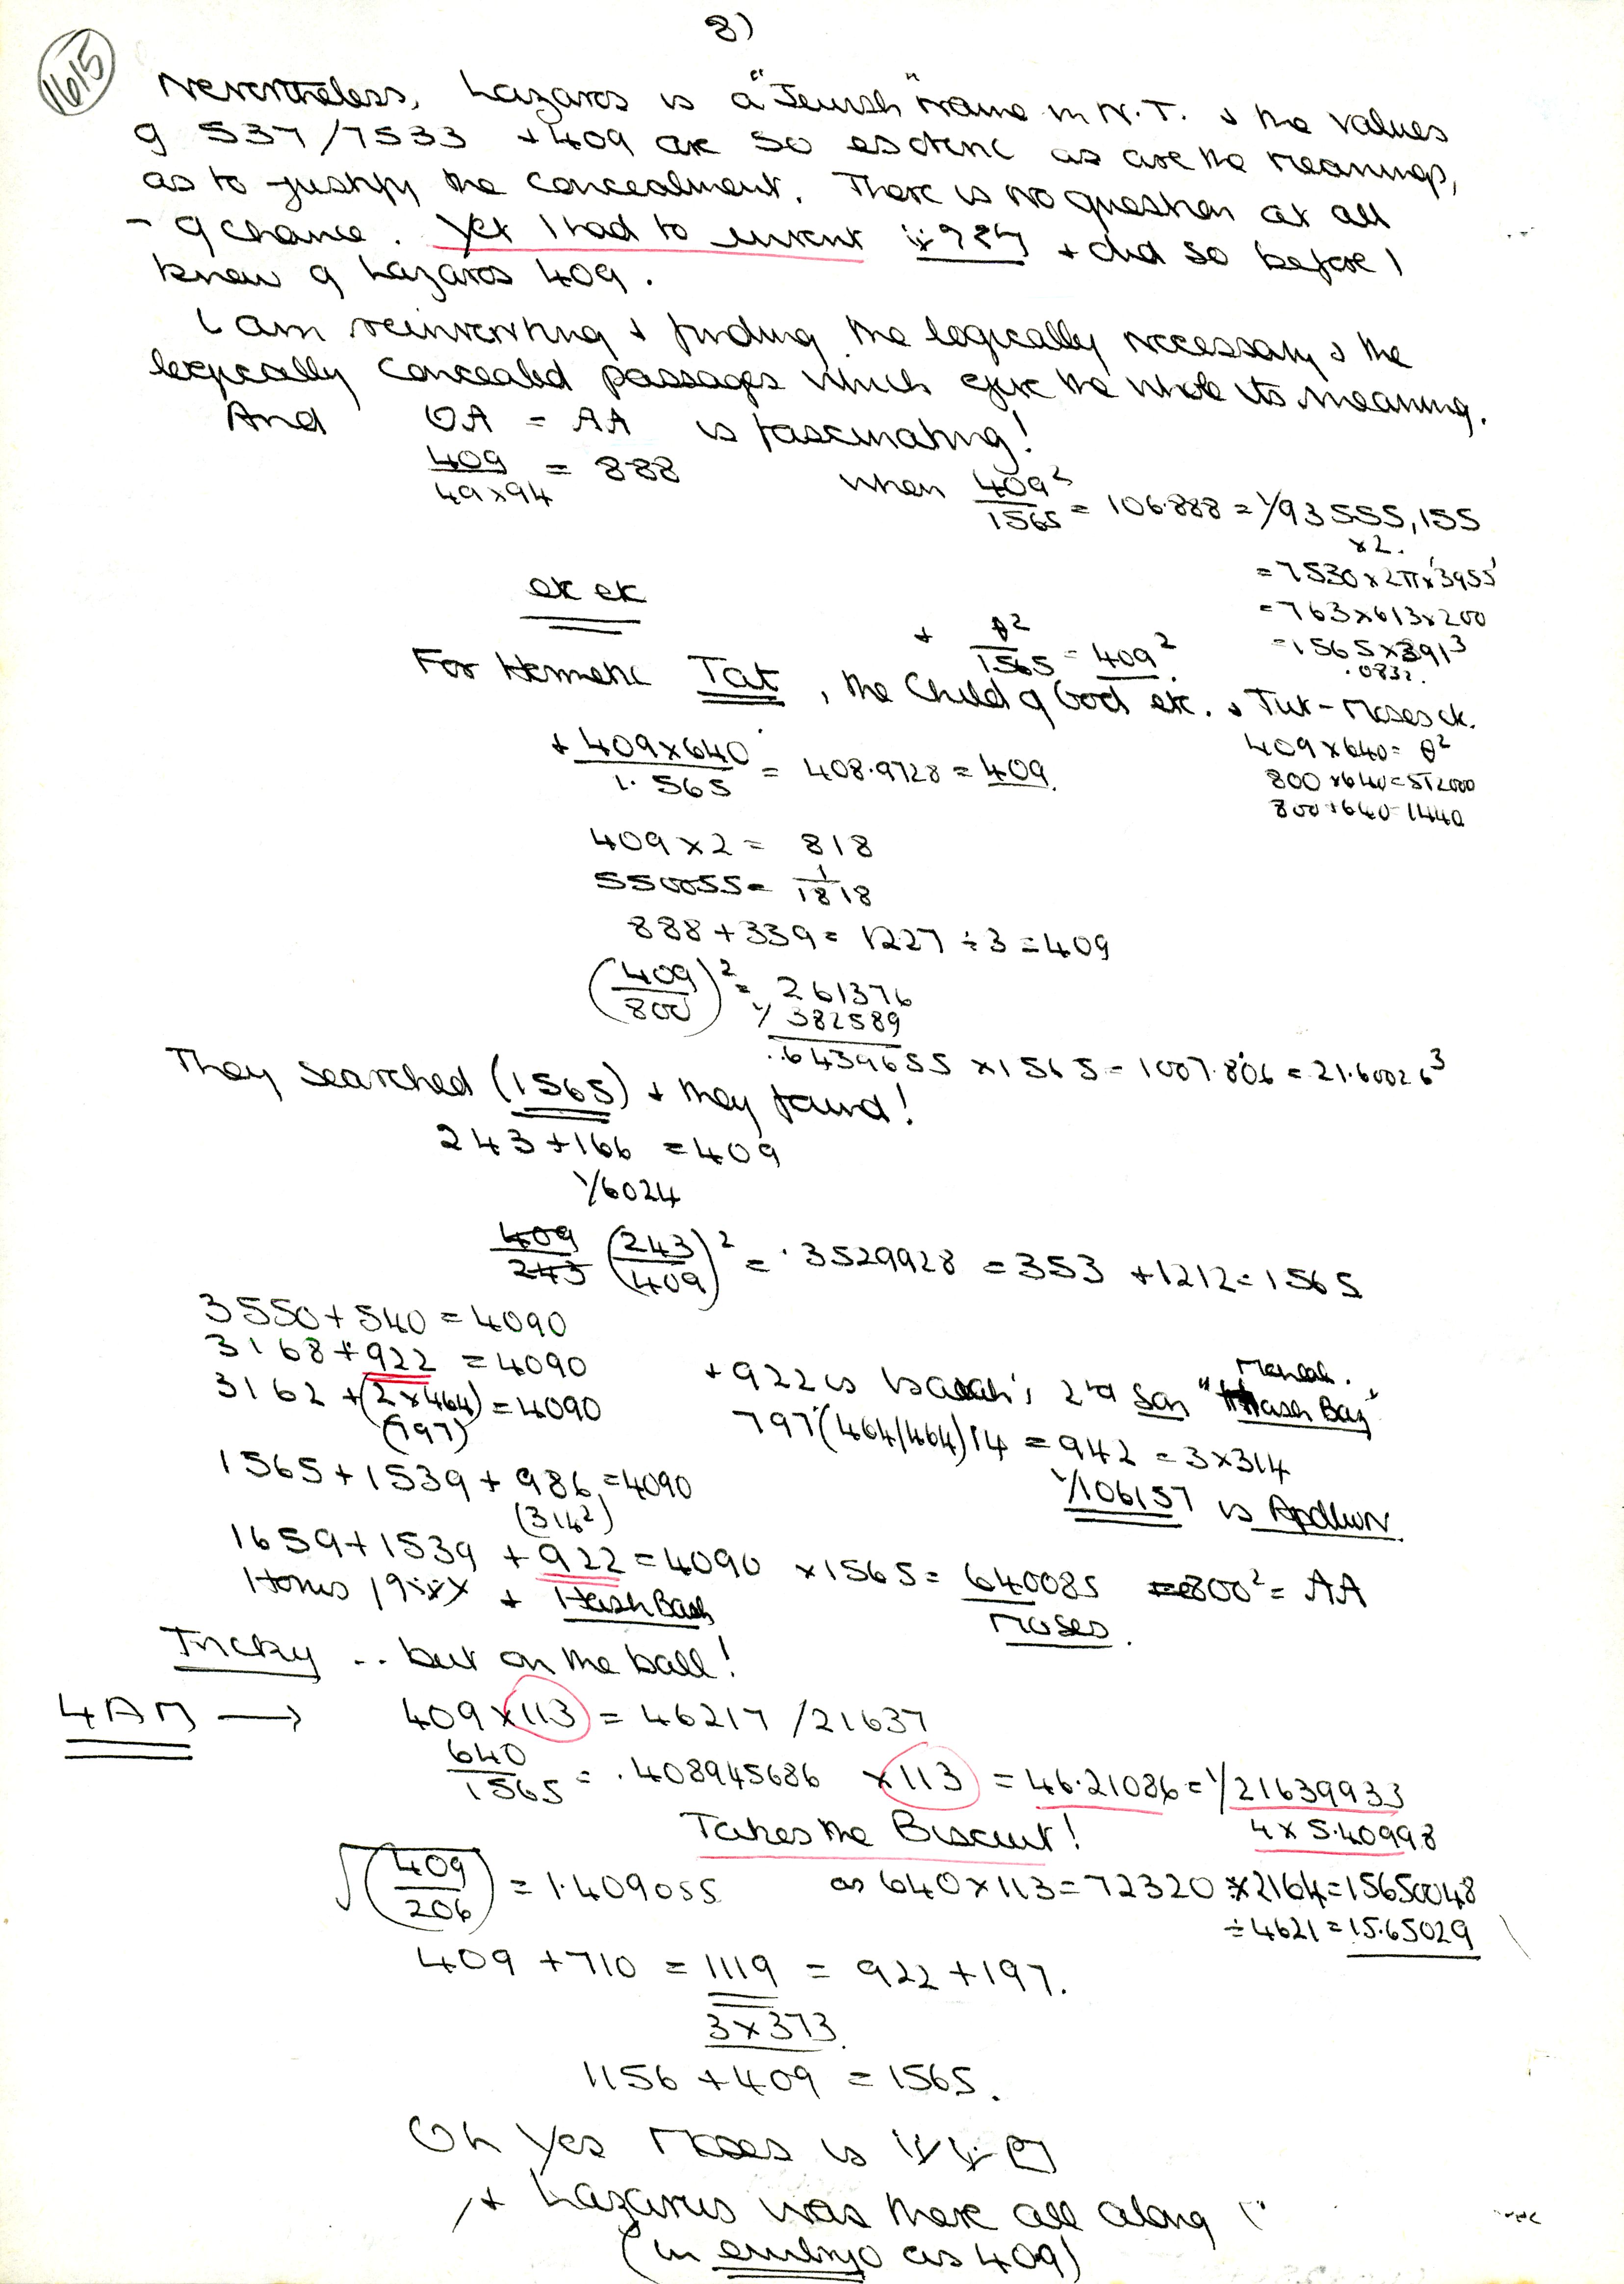 8)
1615
Nevertheless, Lazaros is a "Jewish" name in N.T. + the values
of 537/7533 + 409 are so esoteric as are the meanings,
as to justify the concealment. There is no question at all
- of chance. Yet I had to invent + did so before I
knew of Lazaros 409.
I am reinventing + finding the logically necessary & the
logically concealed passages which give the whole its meaning.
And OA = AA is fascinating!
409/49x94 = 888 when 409²/1565 = 106.888 = 1/93555,155
x2.
= 7530 x 2π x '3955'
etc etc
= 763x613x200
+ θ²/1565 = 409²
= 1565 x 391³
.0832.
For Hermetic Tat, the Child of God etc. & Tut-Moses etc.
+ 409x640/1.565 = 408.9728 = 409.
409x640 = θ²
800x640 = 512000
800+640 = 1440
409 x 2 = 818
550055 = 1/1818
888 + 339 = 1227 ÷ 3 = 409
(409/800)² = 261376
1/382589
.6439655 x 1565 = 1007.806 = 21.60026³
They searched (1565) + they found!
243 + 166 = 409
1/6024
409/243 (243/409)² = .3529928 = 353 + 1212 = 1565
3550 + 540 = 4090
3168 + 922 = 4090
+ 922 is Isaiah's 2nd Son " Hash Baz"
3162 + (2x464) = 4090
(797)
797 (464/464) 14 = 942 = 3x314
1565 + 1539 + 986 = 4090
(314²)
1/106157 is Apollion.
1659 + 1539 + 922 = 4090 x 1565 = 640085 = 800² = AA
Horus + Hash Bash
Moses.
Tricky .. but on the ball!
4AM → 409 x 113 = 46217 / 21637
640/1565 = .408945686 x 113 = 46.21086 = 1/21639933
Takes the Biscuit!
4 x 5.40998
√(409/206) = 1.409055 as 640x113 = 72320 x 2164 = 15650048
÷ 4621 = 15.65029
409 + 710 = 1119 = 922 + 197.
3 x 373
1156 + 409 = 1565.
Oh Yes Moses is
+ Lazarus was there all along!
(in embryo as 409)